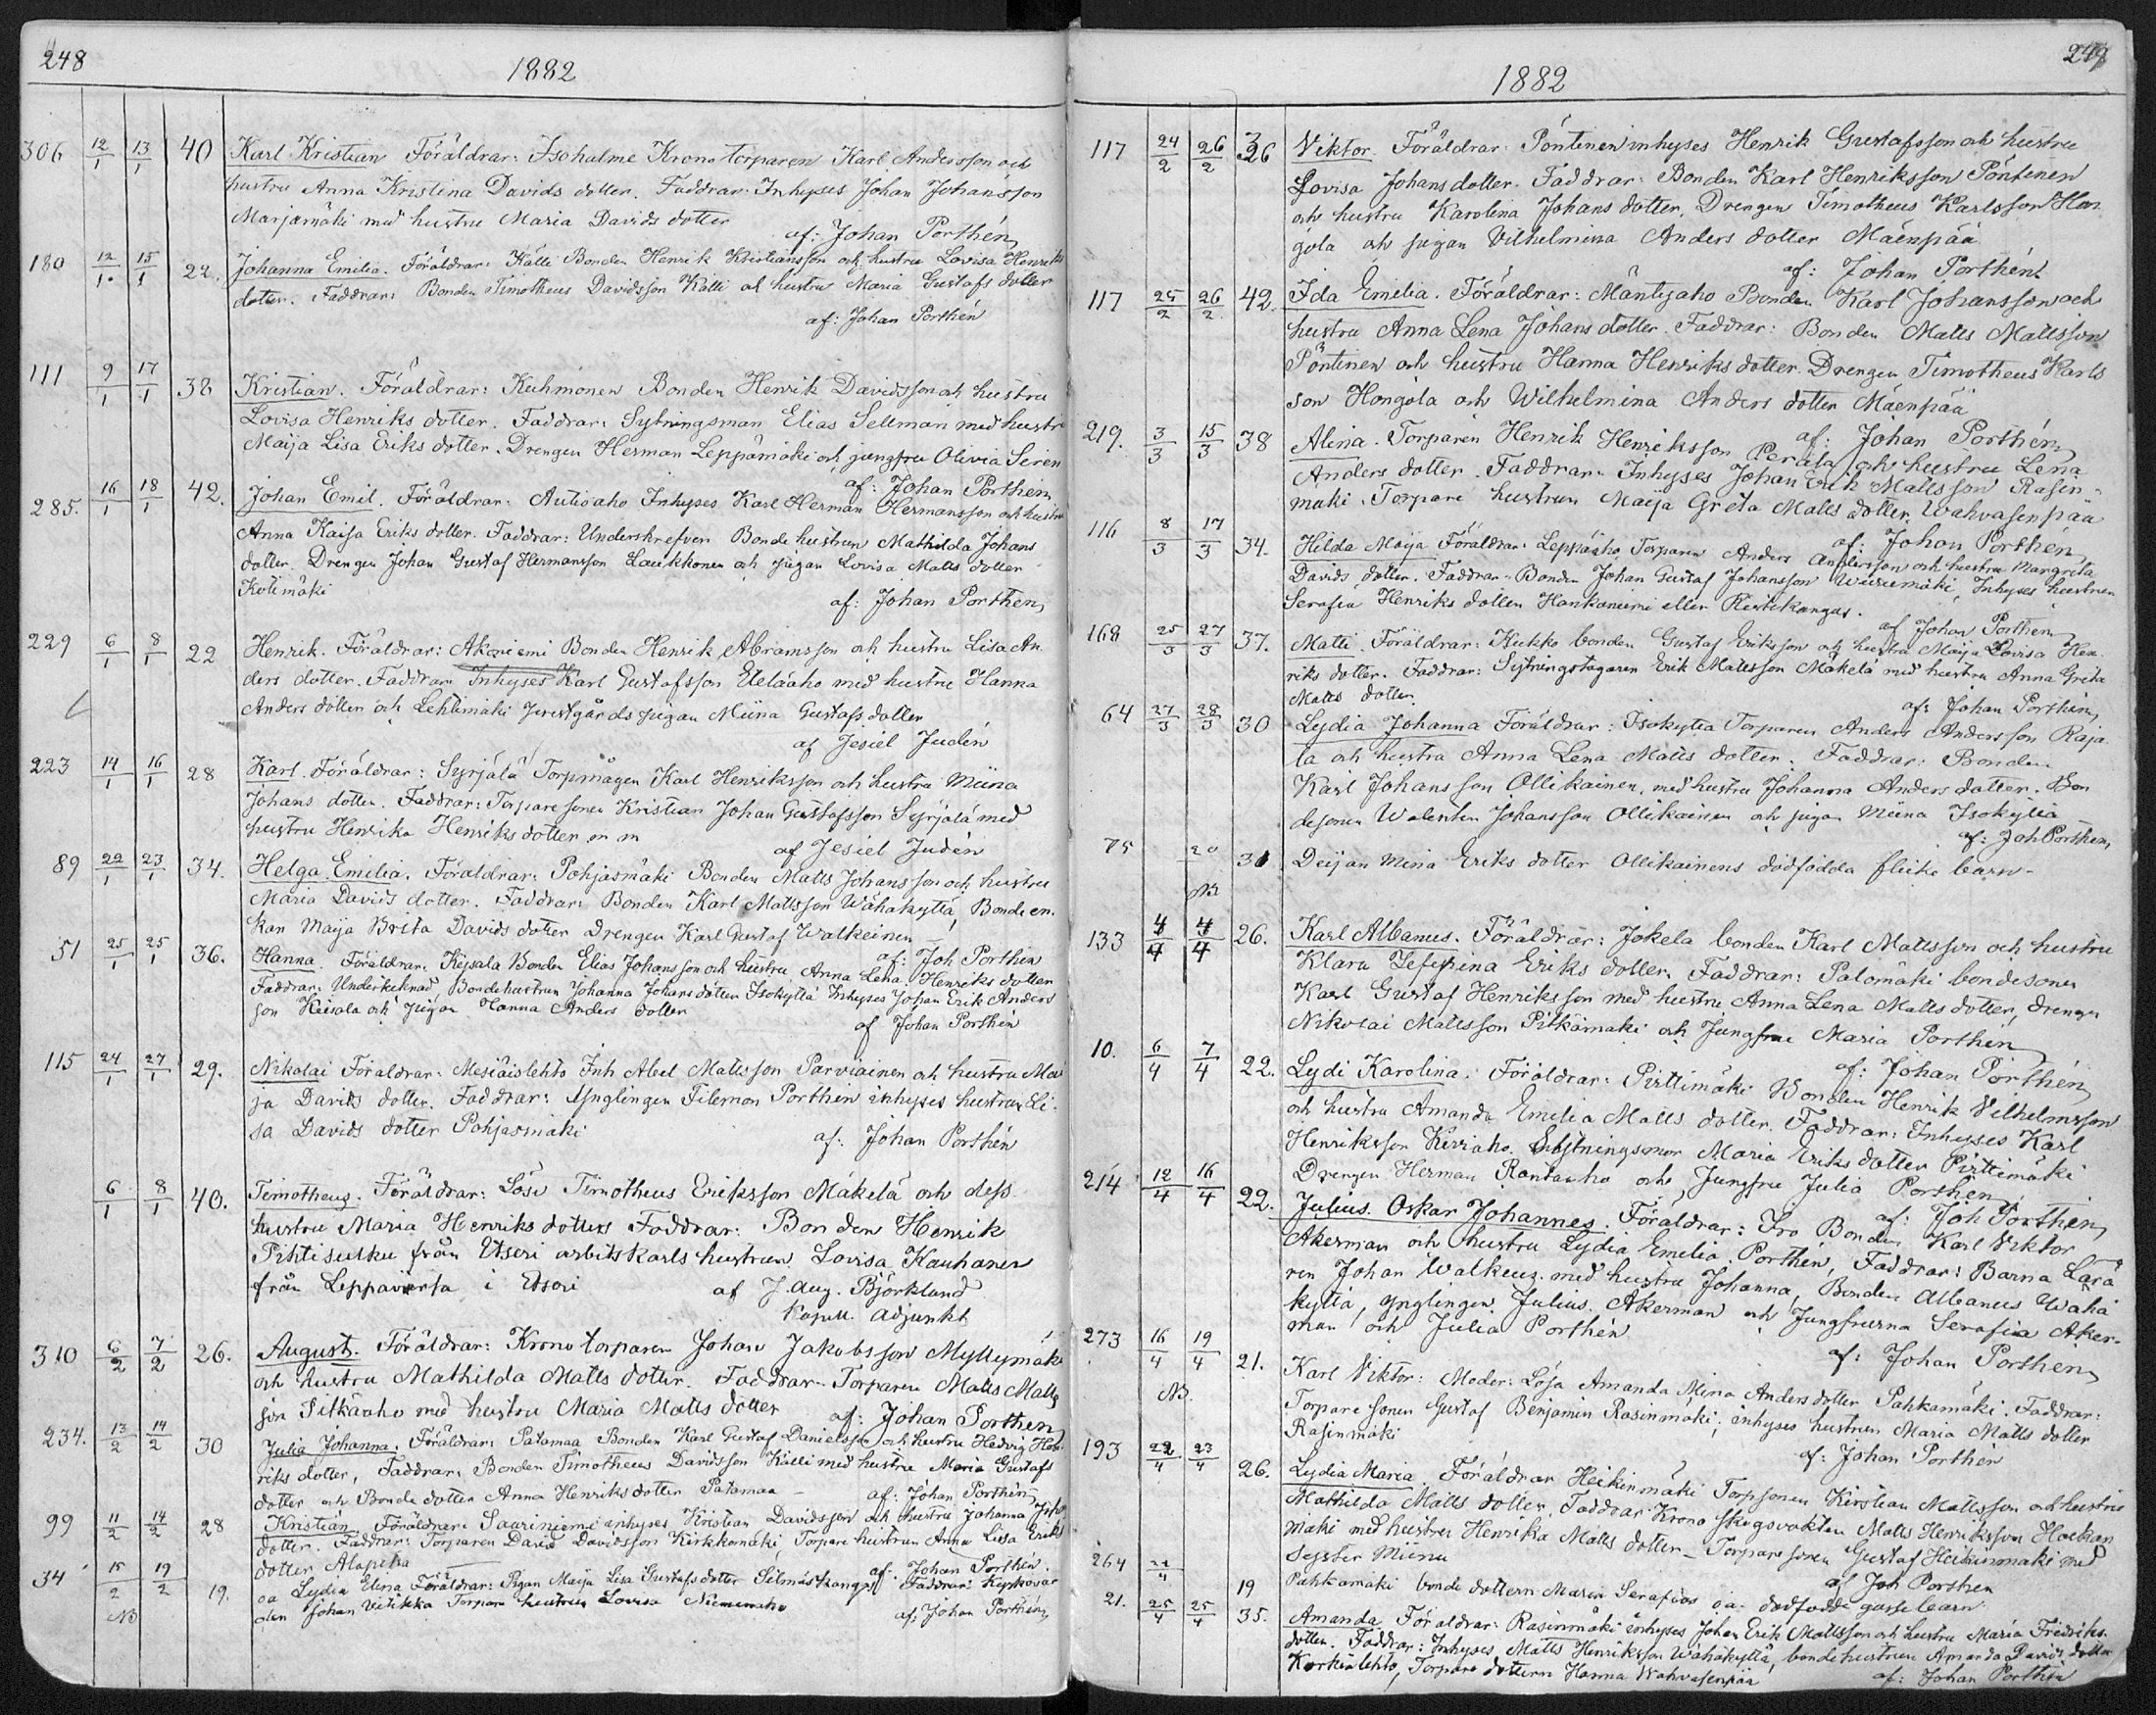 248
1882
306 12/1 13/1 40 Karl Kristian Föräldrar: Isohalme Kronotorparen Karl Andersson och
hustru Anna Kristina Davids dotter. Faddrar: Inhyses Johan Johansson
Marjamäki med hustru Maria Davids dotter
af: Johan Porthén
180 12/1 15/1 22. Johanna Emilia. Föräldrar: Källi Bonden Henrik Kristiansson och hustru Lovisa Henriks
dotter. Faddrar: Bonden Timotheus Davidsson Källi och hustru Maria Gustafs dotter
af: Johan Porthén
111 9/1 17/1 38 Kristian. Föräldrar: Kuhmonen Bonden Henrik Davidsson och hustru
Lovisa Henriks dotter. Faddrar: Sytningsman Elias Sellman med hustru
Maija Lisa Eriks dotter. Drengen Herman Leppämäki och jungfru Olivia Siren
af: Johan Porthén
285. 16/1 18/1 42. Johan Emil. Föräldrar: Autioaho Inhyses Karl Herman Hermansson och hustru
Anna Kaisa Eriks dotter. Faddrar: Underskrefven Bonde hustrun Mathilda Johans
dotter. Drengen Johan Gustaf Hermansson Laukkonen och pigan Lovisa Matts dotter
Kotimäki
af: Johan Porthén
229 6/1 8/1 22 Henrik. Föräldrar: Akoniemi Bonden Henrik Abramsson och hustru Lisa An
ders dotter. Faddrar Inhyses Karl Gustafsson Eteläaho med hustru Hanna
Anders dotter och Lehtimäki prestgårds pigan Miina Gustafs dotter
af Jesiel Judén
223 14/1 16/1 28 Karl. Föräldrar: Syrjälä Torpmågen Karl Henriksson och hustru Miina
Johans dotter. Faddrar: Torpare sonen Kristian Johan Gustafsson Syrjälä med
hustru Henrika Henriks dotter m m
af Jesiel Judén
89 22/1 23/1 34. Helga Emilia. Föräldrar: Pohjasmäki Bonden Matts Johansson och hustru
Maria Davids dotter. Faddrar: Bonden Karl Mattsson Wähäkyttä, Bondeen
kan Maija Brita Davids dotter Drengen Karl Gustaf Walkeinen
af: Joh Porthén
51 25/1 25/1 36. Hanna. Föräldrar. Keisala Bonden Elias Johansson och hustru Anna Lena Henriks dotter
Faddrar: Bondehustrun Johanna Johans dotter Isokyttä Inhyses Johan Erik Anders
son Keisala och pigan Hanna Anders dotter
af Johan Porthén
115 24/1 27/1 29. Nikolai Föräldrar: Mesiäislehto Inh Abel Mattsson Parviainen och hustru Mai
ja Davids dotter. Faddrar: Ynglingen Filemon Porthén inhyses hustrun Li
sa Davids dotter Pohjasmäki
af: Johan Porthén
6/1 8/1 40. Timotheus. Föräldrar: Löse Timotheus Eriksson Mäkelä och dess
hustru Maria Henriks dotter Faddrar: Bonden Henrik
Pihtisulku från Etseri arbetskarls hustrun Lovisa Kauhanen
från Leppävirta i Etseri
af J. Aug. Björklund
Kapell. adjunkt
310 6/2 7/2 26. August. Föräldrar: Kronotorparen Johan Jakobsson Myllymäki
och hustru Mathilda Matts dotter. Faddrar: Torparen Matts Matts
son Pitkäaho med hustru Maria Matts dotter
af: Johan Porthén
234. 13/2 14/2 30 Julia Johanna. Föräldrar: Patamaa Bonden Karl Gustaf Danielsson och hustru Hedvig Hen
riks dotter, Faddrar: Bonden Timotheus Davidsson Källi med hustru Maria Gustafs
dotter och Bonde dotter Anna Henriks dotter Patamaa
af: Johan Porthén
99 11/2 14/2 28 Kristian Föräldrar: Sauriniemi inhyses Kristian Davidsson och hustru Johanna Joh
dotter. Faddrar: Torparen David Davidsson Kirkkomäki, Torpare hustrun Anna Lisa Eriks
dotter Alapiha
af Johan Porthén.
34 15/2 19/2 19. oa Lydia Elina Föräldrar: Pigan Maija Lisa Gustafs dotter Faddrar:
NB
den Johan Vitikka Torpare hustrun Lovisa
af: Johan Porthén

249
1882
117 24/2 26/2 36 Viktor. Föräldrar: Pöntinen inhyses Henrik Gustafsson och hustru
Lovisa Johans dotter. Faddrar: Bonden Karl Henriksson Pöntinen
och hustru Karolina Johans dotter, Drengen Timotheus Karlsson Hon
gola och pigan Vilhelmina Anders dotter Mäenpää
af: Johan Porthén
117 25/2 26/2 42. Ida Emilia. Föräldrar: Mäntyaho Bonden Karl Johansson och
hustru Anna Lena Johans dotter. Faddrar: Bonden Matts Mattsson
Pöntinen och hustru Hanna Henriks dotter. Drengen Timotheus Karls
son Hongola och Wilhelmina Anders dotter Mäenpää
af: Johan Porthén
219. 3/3 15/3 38 Alina. Torparen Henrik Henriksson Perälä och hustru Lena
Anders dotter. Faddrar: Inhyses Johan Erik Mattsson Rasin
mäki. Torpare hustrun Maija Greta Matts dotter Wahvasenpää
af: Johan Porthén
116 8/3 17/3 34. Hilda Maija Föräldrar: Leppäaho Torparen Anders Andersson och hustru Margreta
Davids dotter. Faddrar: Bonden Johan Gustaf Johansson Wuorimäki, Inhyses hustrun
Serafia Henriks dotter Hankaniemi eller Ristikangas.
af Johan Porthén
168 25/3 27/3 37. Matti Föräldrar: Kukko bonden Gustaf Eriksson och hustru Maija Lovisa Hen
riks dotter. Faddrar: Sytningstagaren Erik Mattsson Mäkelä med hustru Anna Greta
Matts dotter.
af: Johan Porthén
64 27/3 28/3 30 Lydia Johanna Föräldrar: Isokyttä Torparen Anders Andersson Raja
la och hustru Anna Lena Matts dotter. Faddrar: Bonden
Karl Johansson Ollikainen, med hustru Johanna Anders dotter. Bon
desonen Walentin Johansson Ollikainen och pigan Miina Isokyttä
af: Joh Porthén
75 20 31 Deijan Mina Eriks dotter Ollikainens dödfödda flicke barn
NB
133 4/4 4/4 26. Karl Albanus. Föräldrar: Jokela bonden Karl Mattsson och hustru
Klara Zefyrina Eriks dotter. Faddrar: Palomäki bondesonen
Karl Gustaf Henriksson med hustru Anna Lena Matts dotter, drengen
Nikolai Mattsson Pitkämäki och Jungfru Maria Porthén
af: Johan Porthén
10. 6/4 7/4 22. Lydi Karolina. Föräldrar: Pirttimäki Bonden Henrik Vilhelmsson
och hustru Amanda Emilia Matts dotter. Faddrar: Inhyses Karl
Henriksson Kiviaho. Sytningsmor Maria Eriks dotter Pirttimäki
Drengen Herman Rantaaho och Jungfru Julia Porthén
af: Joh Porthén
214 12/4 16/4 22. Julius Oskar Johannes. Föräldrar: Iso Bonden Karl Viktor
Akerman och hustru Lydia Emilia Porthén, Faddrar: Barna Lärä
ren Johan Walkeus med hustru Johanna, Bonden Albanus Wähä
kyttä, Ynglingen Julius Akerman och Jungfrurna Serafia Aker-
man och Julia Porthén
af: Johan Porthén
273 16/4 19/4 21. Karl Viktor: Moder: Lösa Amanda Mina Anders dotter Pahkamäki. Faddrar:
NB.
Torpare sonen Gustaf Benjamin Rasinmäki, inhyses hustrun Maria Matts dotter
Rasinmäki
af: Johan Porthén
193 22/4 23/4 26. Lydia Maria Föräldrar Heikinmäki Torpsonen Kristian Mattsson och hustru
Mathilda Matts dotter. Faddrar Krono skogsvakten Matts Henriksson
mäki med hustru Henrika Matts dotter - Torpare sonen Gustaf Heikinmäki med
syster Miina
af Joh Porthen
264 22/4 19 Pahkamäki bonde dottern Maria Serafias oä dödfödde gosse barn
21. 25/4 25/4 35. Amanda Föräldrar: Rasinmäki inhyses Johan Erik Mattsson och hustru Maria Fredriks
dotter. Faddrar: Inhyses Matts Henriksson Wähäkyttä, bondehustrun Amanda Davids dotter
Korkialehto, Torpare dottern Hanna Wahvasenpää
af: Johan Porthén